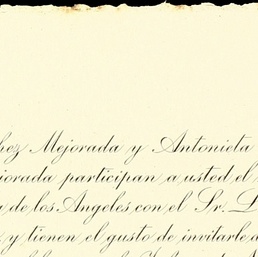 bez Mejorada y Antonieta
jorada participan a usted el
a de los Angeles con el Sr. L
y tienen el gusto de invitarle a